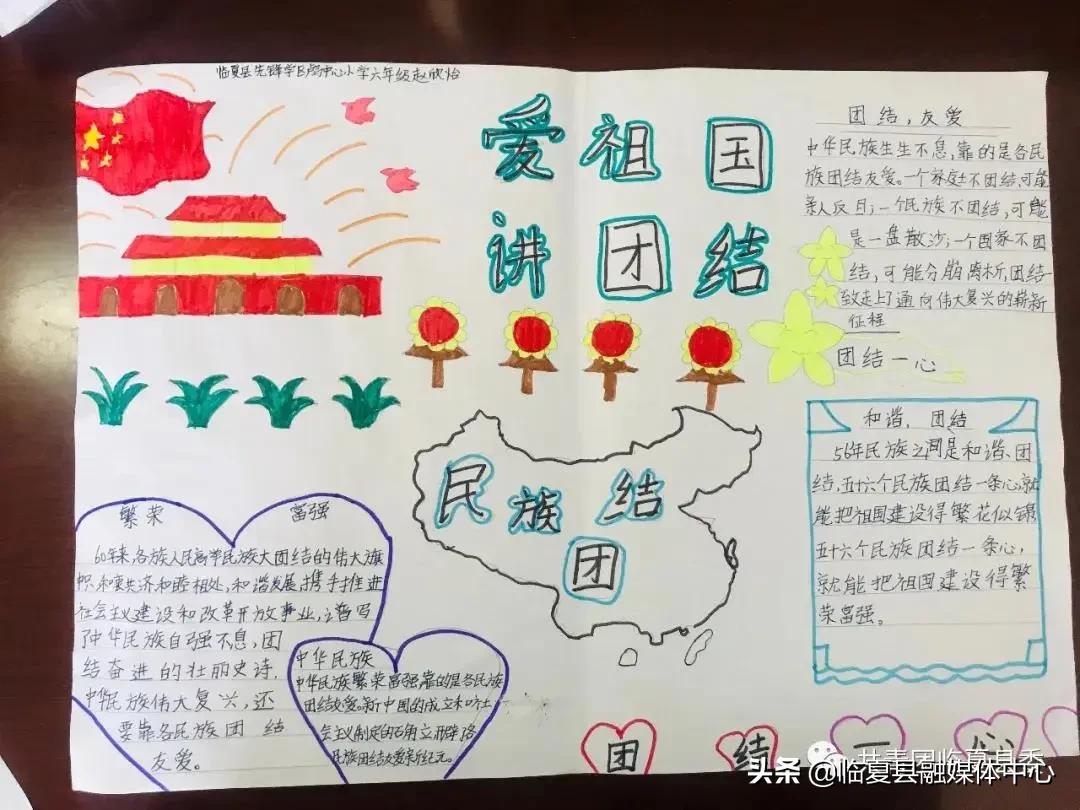 临夏县先锋学区卢中心小学六年级赵欣怡
爱祖国
讲团结
团结,友爱
中华民族生生不息,靠的是各民
族团结友爱。一个家庭不团结,可能
亲人反目;一个民族不团结,可能
是一盘散沙;一个国家不团
结,可能分崩离析,团结一
致走上了通向伟大复兴的崭新
征程
团结一心
和谐,团结
56年民族之间是和谐、团
结,五十六个民族团结一条心,就
能把祖国建设得繁花似锦
五十六个民族团结一条心,
就能把祖国建设得繁
荣富强。
民族结
团
繁荣 富强
60年来,各族人民高举民族大团结的伟大旗
帜,和衷共济和睦相处,和谐发展,携手推进
社会主义建设和改革开放事业,谱写
了中华民族自强不息,团
结奋进的壮丽史诗,
中华民族伟大复兴,还
要靠各民族团结
友爱。
中华民族
中华民族繁荣富强靠的是各民族
团结友爱。新中国的成立和
会主义制定的确立开辟
民族团结友爱新纪元。
团结一心
共青团临夏县委
头条 @临夏县融媒体中心